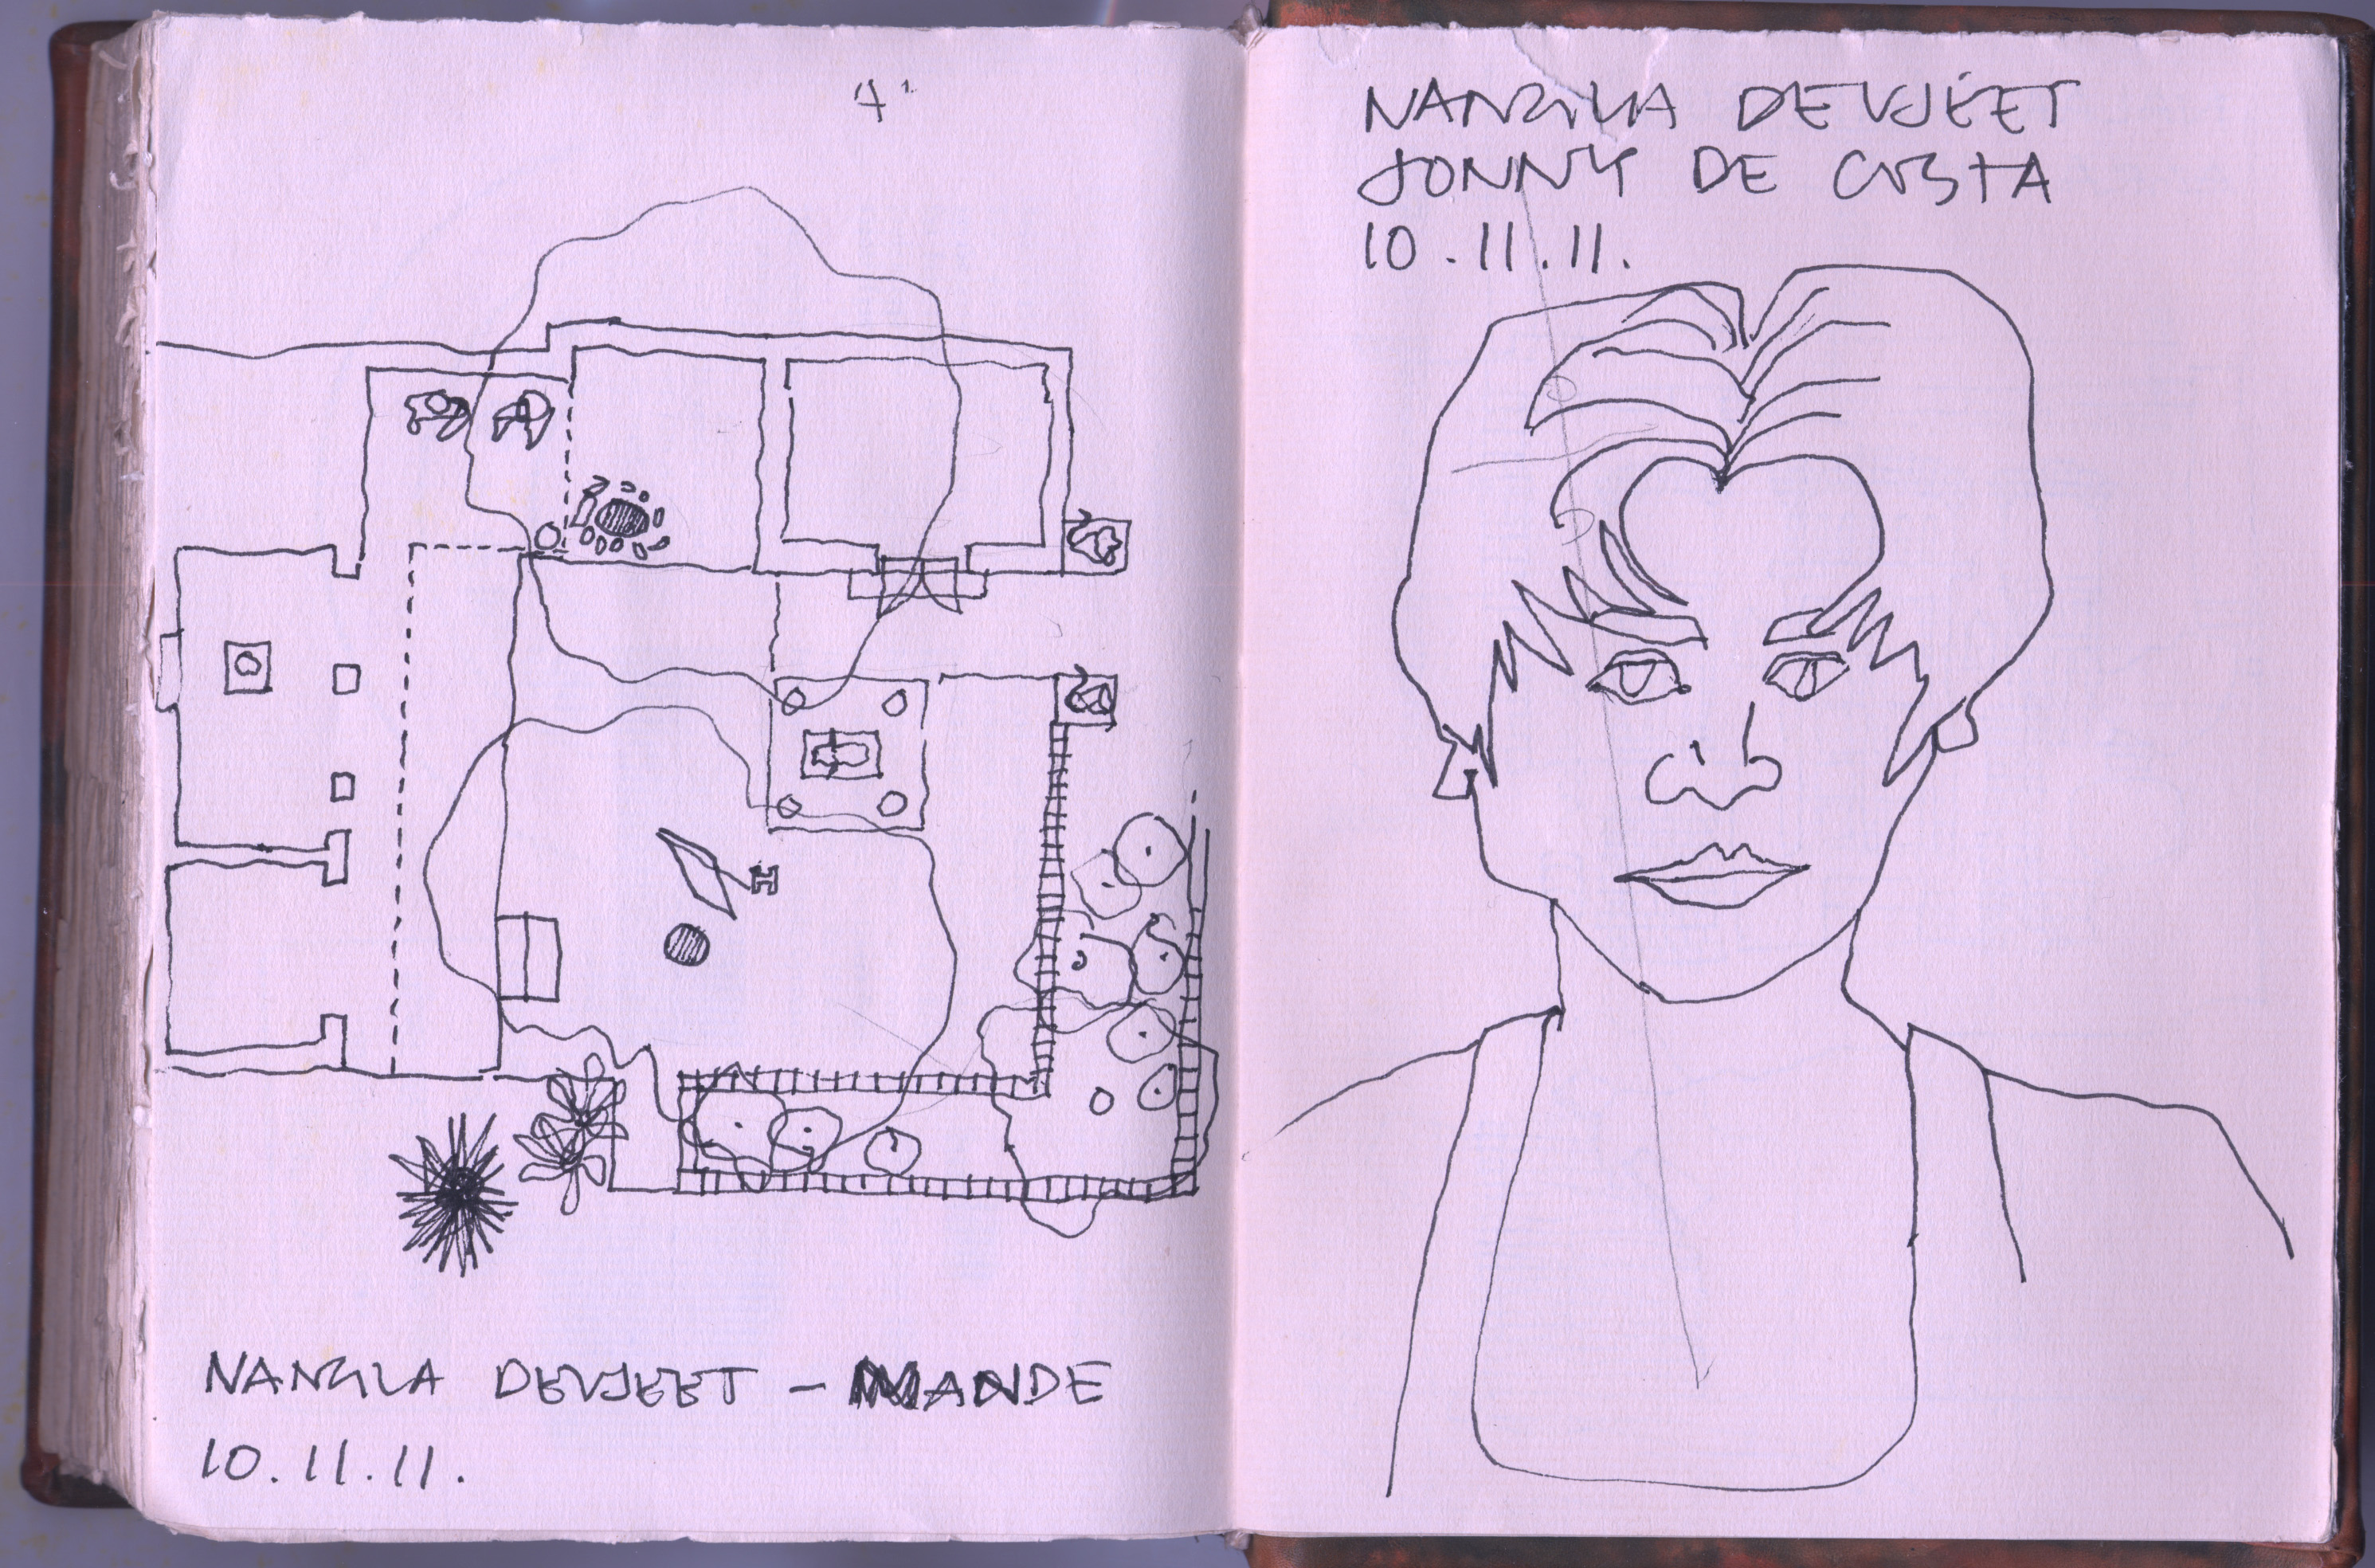 4'
NANGLA DEVJEET - MANDE
10.11.11.
NANGLA DEVJEET
JONNY DE COSTA
10.11.11.